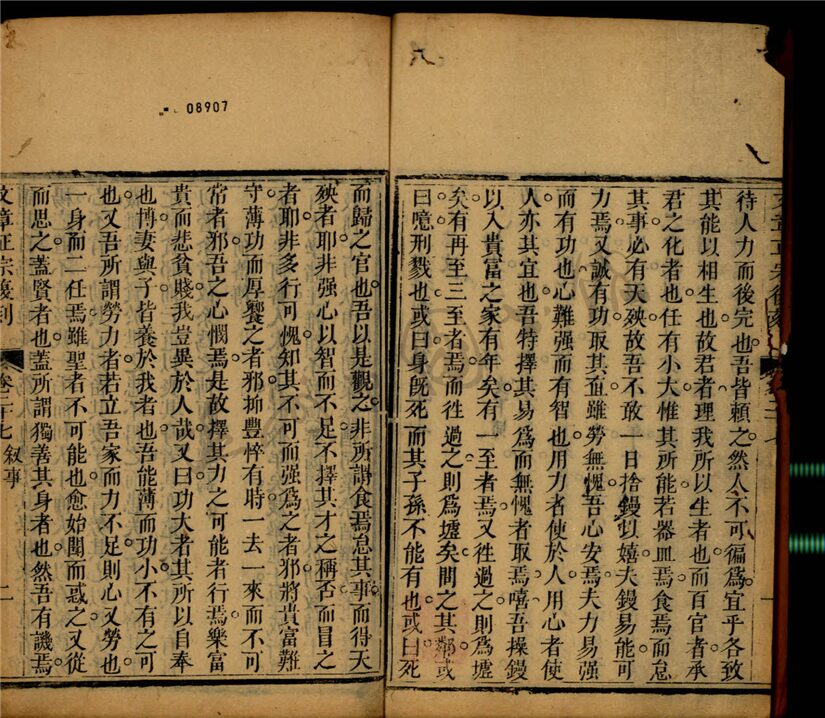 六
待人力而後完也吾皆賴之然人不可徧為宜乎各致
其能以相生也故君者理我所以生者也而百官者承
君之化者也任有小大惟其所能若器皿焉食焉而怠
其事必有天殃故吾不敢一日捨鏝以嬉夫鏝易能可
力焉又誠有功取其直雖勞無愧吾心安焉夫力易强
而有功也心難强而有智也用力者使於人用心者使
人亦其宜也吾特擇其易為而無愧者取焉嘻吾操鏝
以入貴富之家有年矣有一至者焉又徃過之則為墟
矣有再至三至者焉而徃過之則為墟矣問之其鄰或
曰噫刑戮也或曰身旣死而其子孫不能有也或曰死
08907
而歸之官也吾以是觀之非所謂食焉怠其事而得天
殃者耶非强心以智而不足不擇其才之稱否而冒之
者耶非多行可愧知其不可而强為之者邪將貴富難
守薄功而厚饗之者邪抑豐悴有時一去一來而不可
常者邪吾之心憫焉是故擇其力之可能者行焉樂富
貴而悲貧賤我豈異於人哉又曰功大者其所以自奉
也博妻與子皆養於我者也吾能薄而功小不有之可
也又吾所謂勞力者若立吾家而力不足則心又勞也
一身而二任焉雖聖者不可能也愈始聞而惑之又從
而思之蓋賢者也蓋所謂獨善其身者也然吾有譏焉
文章正宗復刻 卷二十七 叙事 二